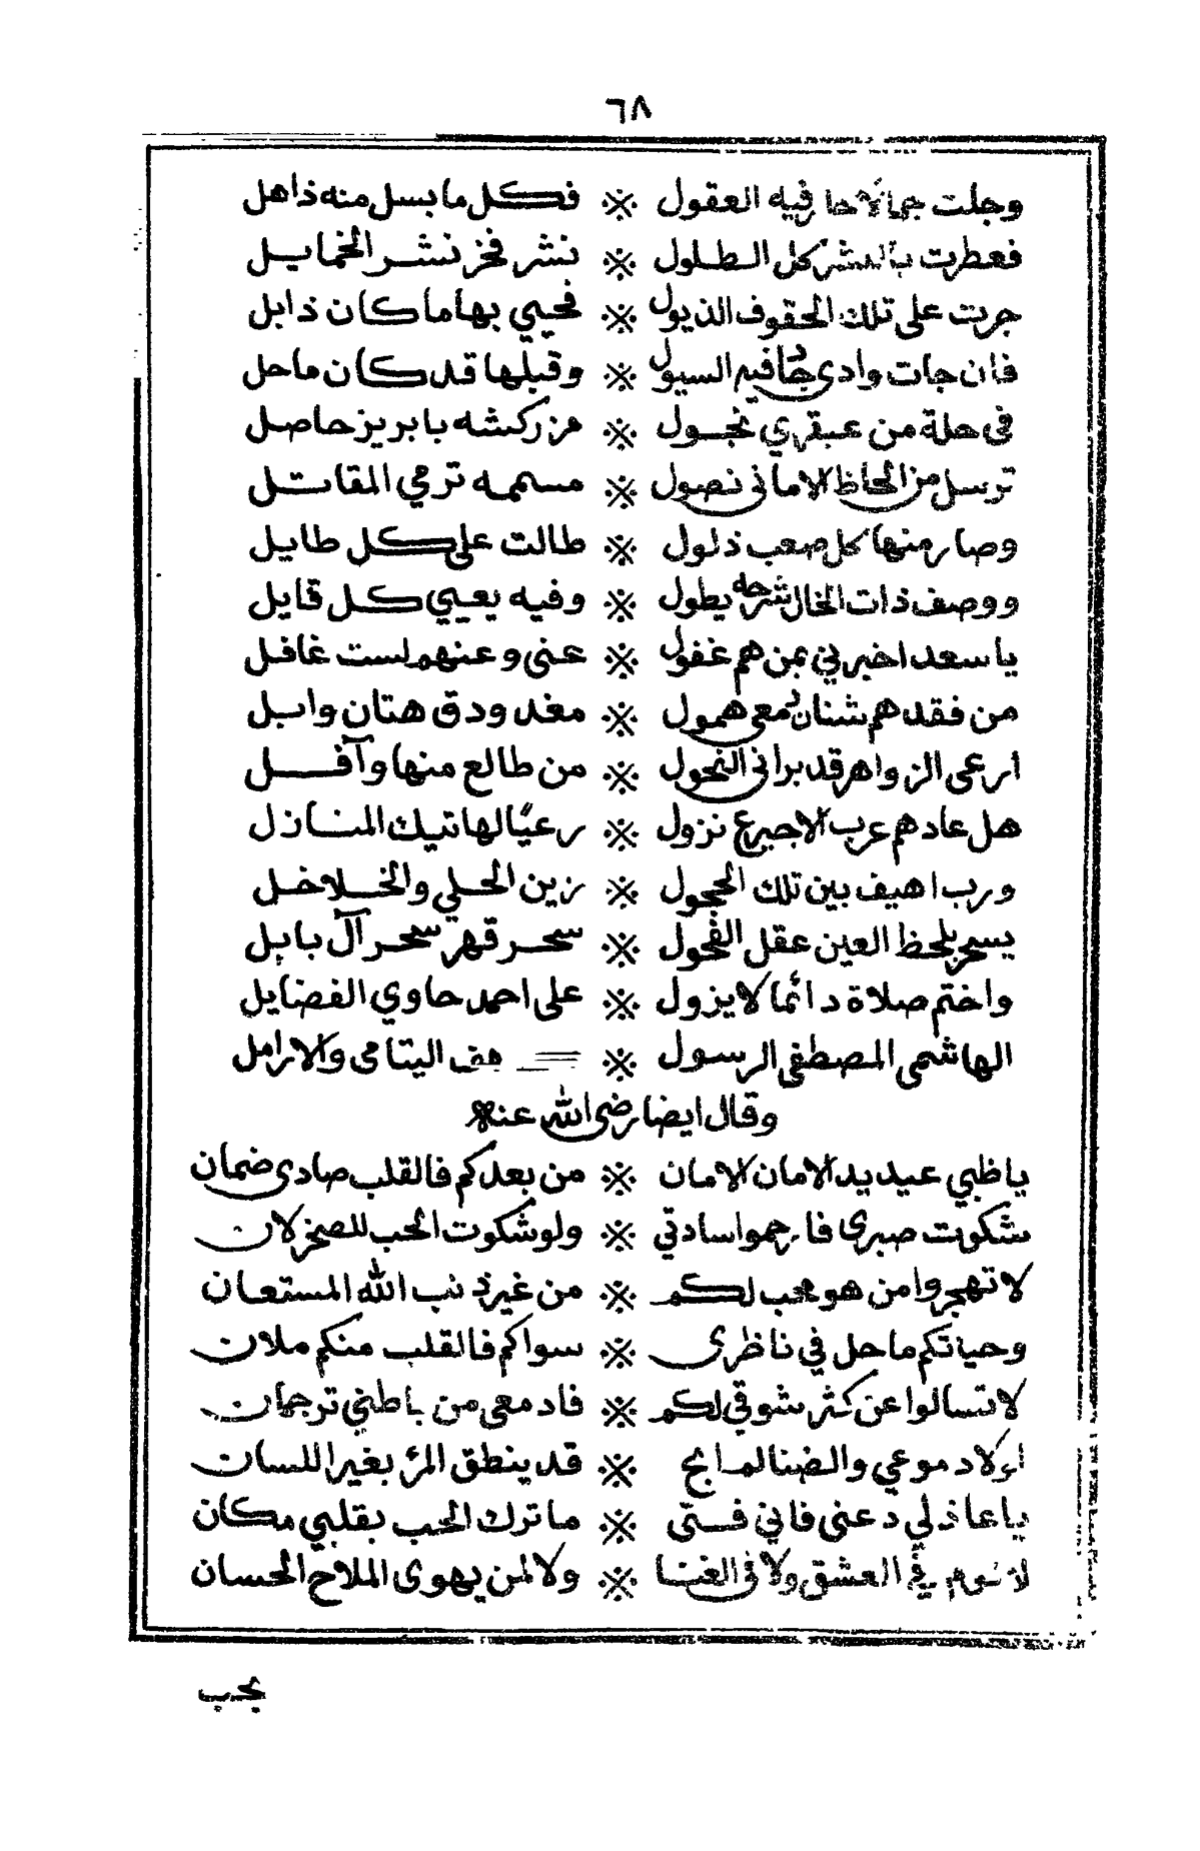 ٦٨
وجلت جمالا حار فيه العقول ※ فكل ما بسل منه ذاهل
فعطرت بالنشر كل الطلول ※ نشر فخر نشر الخمايل
جرت على تلك الحقوف الذيول ※ فحيي بها ما كان ذابل
فان جات وادى جاد فيه السيول ※ وقبلها قد كان ماحل
فى حلة من عبقري نجول ※ مزركشه بابريز حاصل
ترسل من الحاظ الامانى نصول ※ مسممه ترمي المقاتل
وصار منها كل صعب ذلول ※ طالت على كل طايل
ووصف ذات الخال شرحه يطول ※ وفيه يعيي كل قايل
ياسعد اخبرني بمن هم غفول ※ عنى وعنهم لست غافل
من فقدهم شنان دمعى همول ※ مغدودق هتان وابل
ارعى الزواهر قد برانى النحول ※ من طالع منها وآفل
هل عادهم عرب الاجيرع نزول ※ رعيًا لهاتيك المنازل
ورب اهيف بين تلك الحجول ※ زين الحلي والخلاخل
يسحر بلحظ العين عقل الفحول ※ سحر قهر سحر آل بابل
واختم صلاة دائما لا يزول ※ على احمد حاوي الفضايل
الهاشمى المصطفى الرسول ※ هف اليتامى والارامل
وقال ايضا رضى الله عنه
ياظبي عيديد الامان الامان ※ من بعدكم فالقلب صادى ضمان
شكوت صبرى فارحموا سادتي ※ ولو شكوت الحب للصخر لان
لا تهجروا من هو محب لكم ※ من غير ذنب الله المستعان
وحياتكم ما حل في ناظرى ※ سواكم فالقلب منكم ملان
لا تسالوا عن كثر شوقي لكم ※ فادمعى من باطني ترجمان
لولا دموعي والضنا لم ابح ※ قد ينطق المرء بغير اللسان
ياعاذلي دعنى فاني فتى ※ ما ترك الحب بقلبي مكان
لا نوم في العشق ولا فى الغنا ※ ولا لمن يهوى الملاح الحسان
يجب